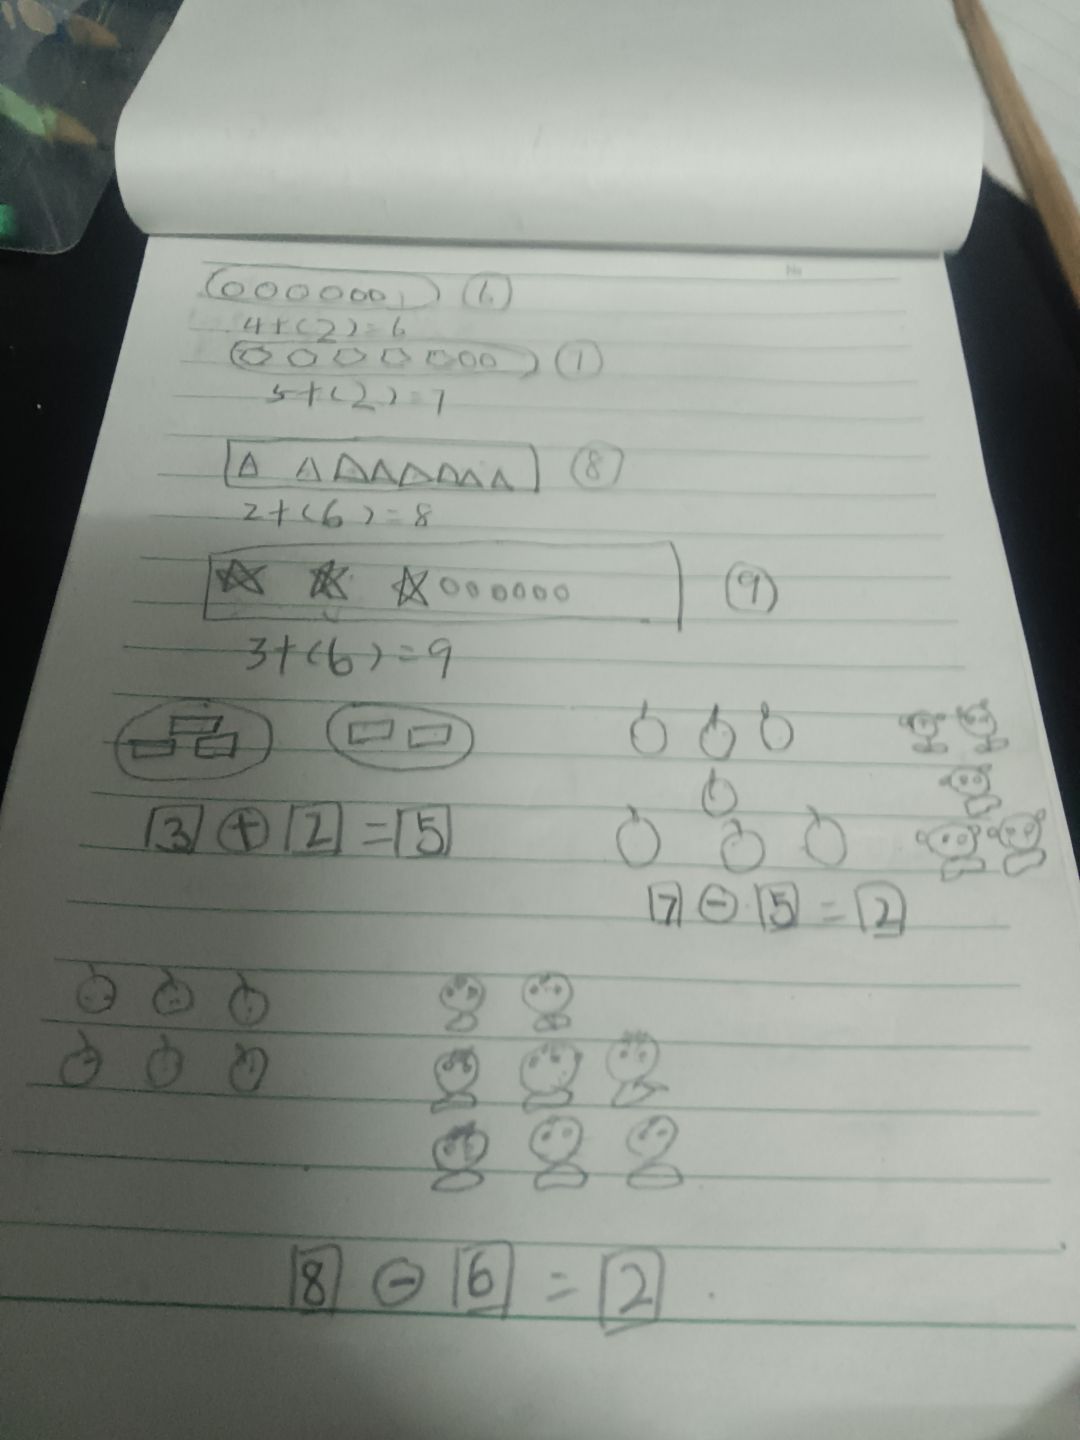 6
4+(2)=6
7
5+(2)=7
8
2+(6)=8
9
3+(6)=9
3 + 2 = 5
7 - 5 = 2
8 - 6 = 2